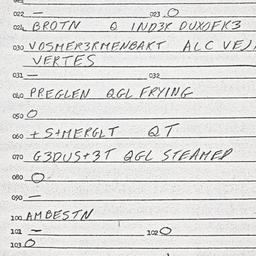 022 — 023 O
024 BROTN Q IND3R DUXOFK3
030 VOSMER3RMENBAKT ALC VEJ
VERTES
031 — 032
040 PREGLEN QGL FRYING
050 O
060 + S+MERGLT QT
070 G3DUS+3T QGL STEAMED
080 O
090 —
100 AMBESTN
101 — 102 O
103 O